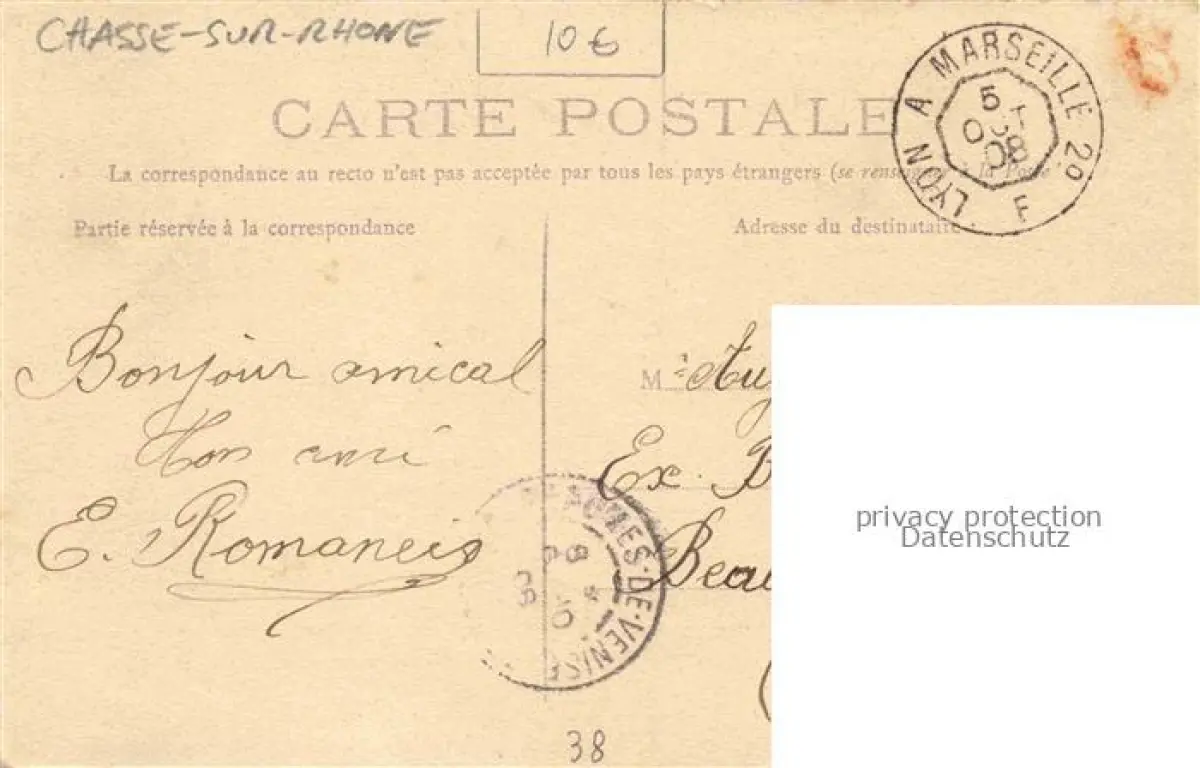 CHASSE-SUR-RHONE
10€
CARTE POSTALE
La correspondance au recto n'est pas acceptée par tous les pays étrangers (se renseigner à la Poste
Partie réservée à la correspondance
Adresse du destinataire
LYON A MARSEILLE 20
5 OCT 08
F
Bonjour amical
Mon ami
E. Romaneis
M
Ex. B
Beau
DE-VENISE
38
privacy protection
Datenschutz